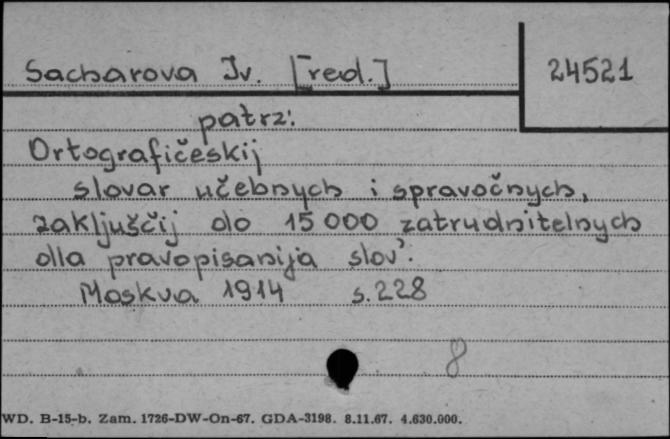 Sacharova Iv. [red.]
24521
patrz:
Ortografičeskij
slovar učebnych i spravočnych,
zakljuščij do 15000 zatrudnitelnych
dlla pravopisanija slov'.
Moskva 1914 s. 228
8
WD. B-15-b. Zam. 1726-DW-On-67. GDA-3198. 8.11.67. 4.630.000.